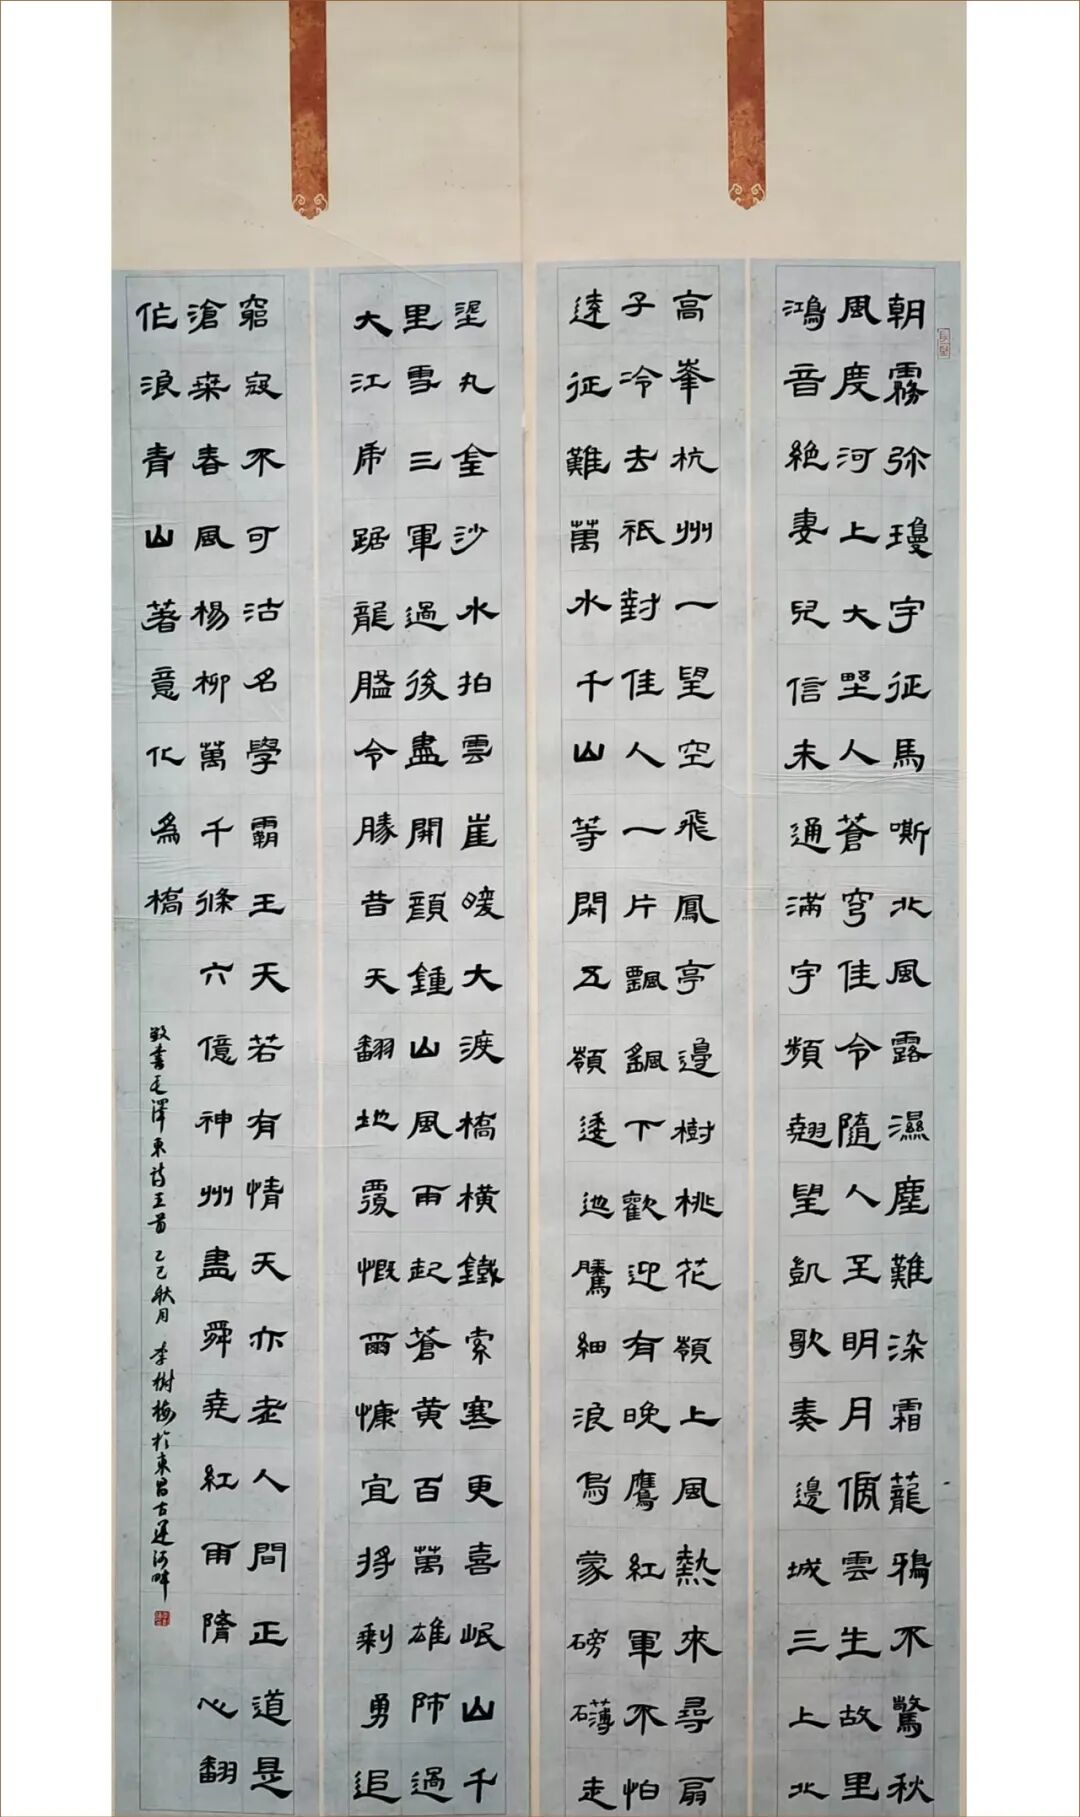 朝霧弥瓊宇征馬嘶北風露濕塵難染霜蘢鴉不驚秋
風度河上大野人蒼穹佳令隨人至明月傍雲生故里
鴻音絶妻兒信未通滿宇頻翹望凱歌奏邊城三上北
高峯杭州一望空飛鳳亭邊樹桃花嶺上風熱來尋扇
子冷去祇對佳人一片飄飖下歡迎有晚鷹紅軍不怕
遠征難萬水千山等閑五嶺逶迤騰細浪烏蒙磅礴走
埿丸金沙水拍雲崖暖大渡橋橫鐵索寒更喜岷山千
里雪三軍過後盡開顔鍾山風雨起蒼黃百萬雄師過
大江虎踞龍盤今勝昔天翻地覆慨爾慷宜將剩勇追
窮寇不可沽名學霸王天若有情天亦老人間正道是
滄桒春風楊柳萬千條六億神州盡舜堯紅雨隨心翻
作浪青山著意化爲橋
敬書毛澤東詩五首 乙巳秋月 李樹梅於東昌古運河畔